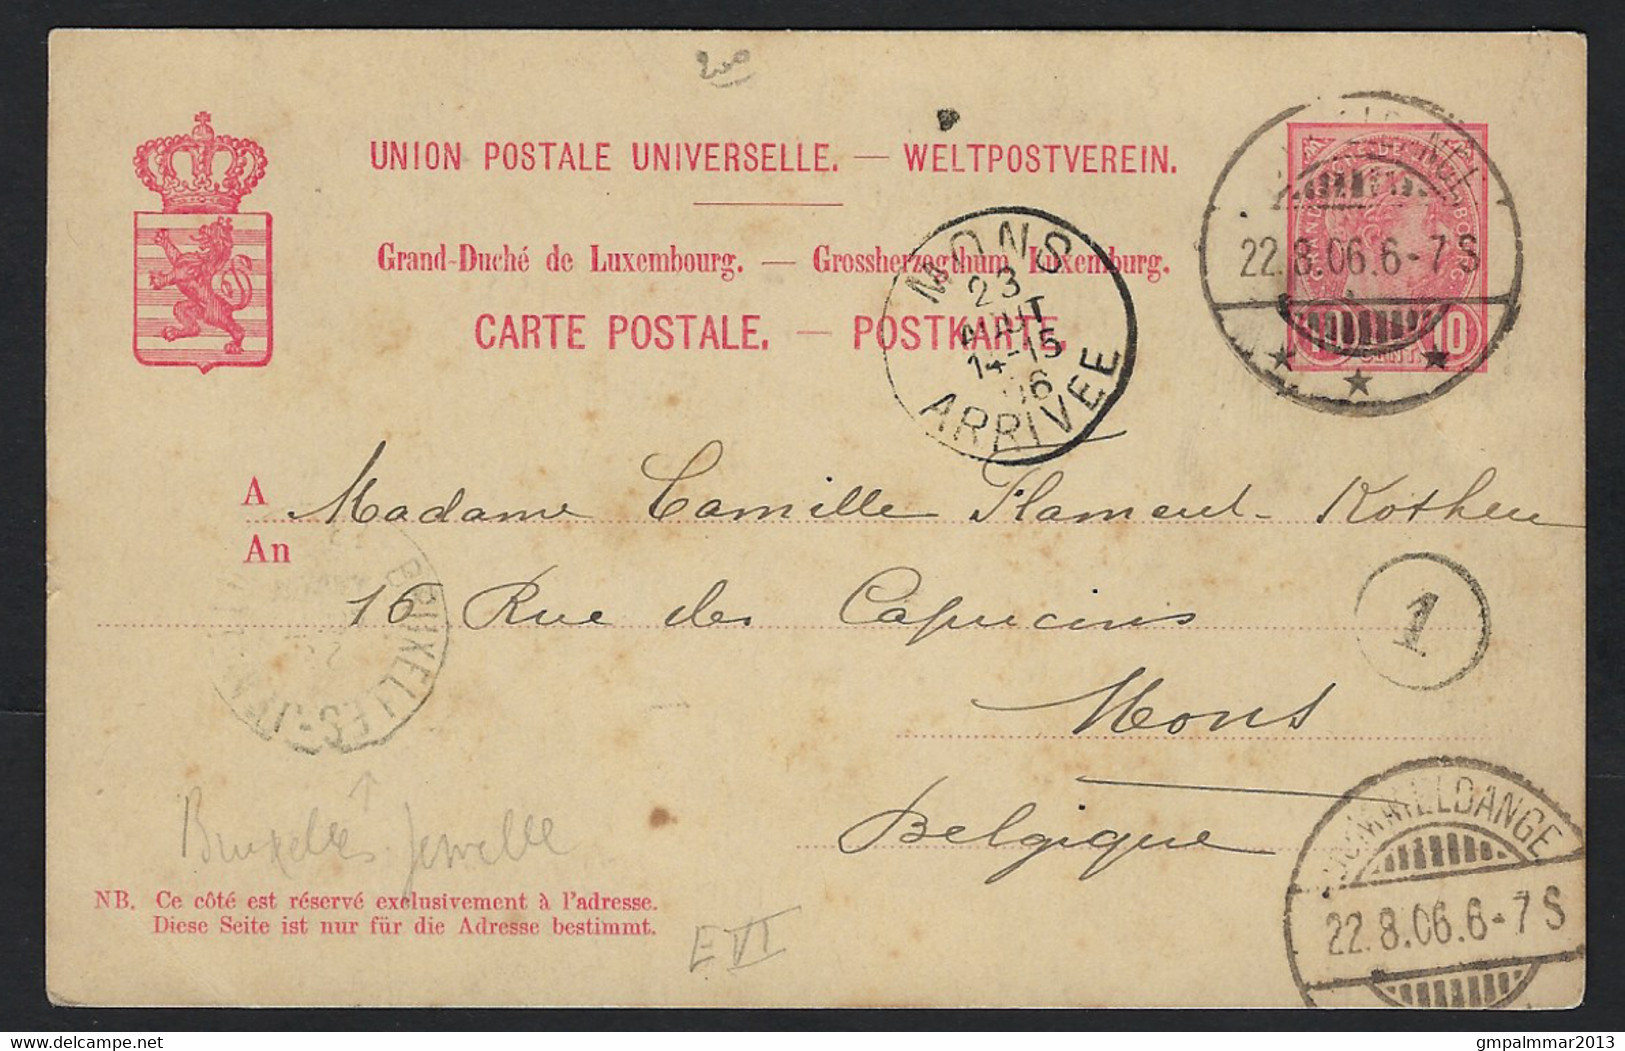 200
UNION POSTALE UNIVERSELLE. — WELTPOSTVEREIN.
Grand-Duché de Luxembourg. — Grossherzogthum Luxemburg.
CARTE POSTALE. — POSTKARTE.
22.8.06.6-7S
10 CENT. 10
MONS
23
AOUT
14-15
06
ARRIVEE
A Madame Camille Flament-Kothen
An
16 Rue des Capucins
1
Mons
Belgique
BRUXELLES
Bruxelles
NB. Ce côté est réservé exclusivement à l'adresse.
Diese Seite ist nur für die Adresse bestimmt.
E VI
22.8.06.6-7S
gmpalmmar2013